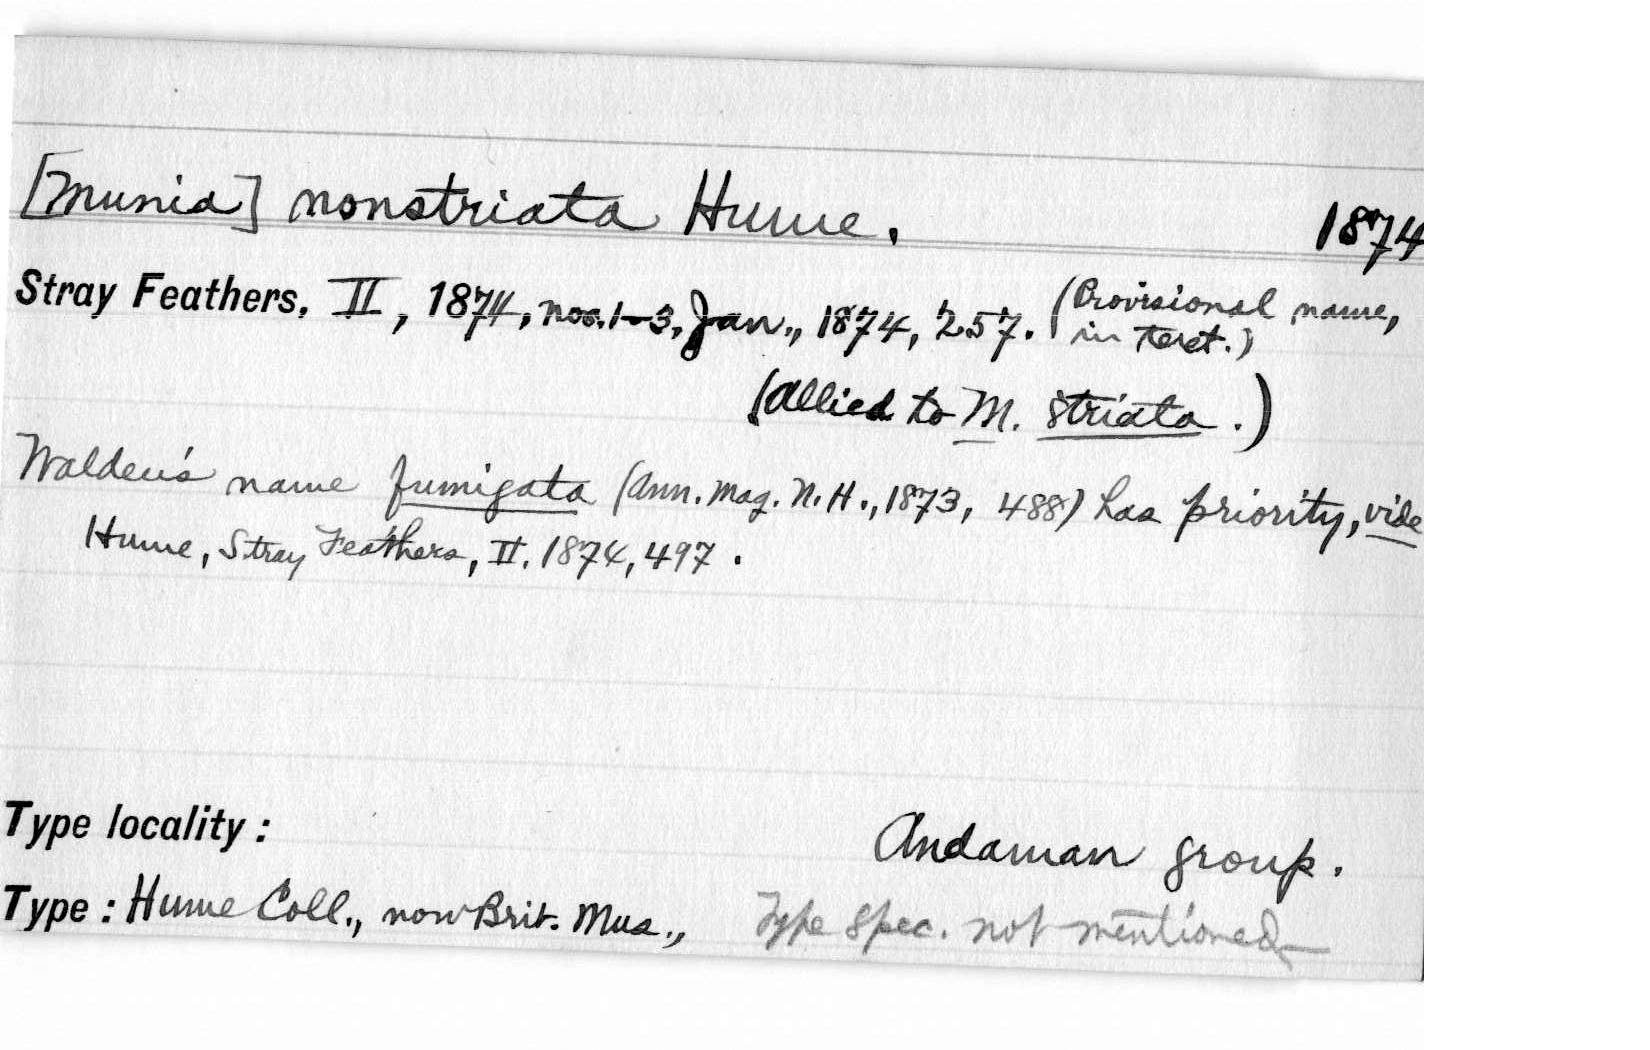 [Munia] nonstriata Hume. 1874
Stray Feathers, II, 1874, nos. 1-3, Jan., 1874, 257. (Provisional name,
in text.)
(allied to M. striata.)
Walden's name fumigata (Ann. Mag. N. H., 1873, 488) has priority, vide
Hume, Stray Feathers, II, 1874, 497.
Type locality: Andaman group.
Type: Hume Coll., now Brit. Mus., Type spec. not mentioned